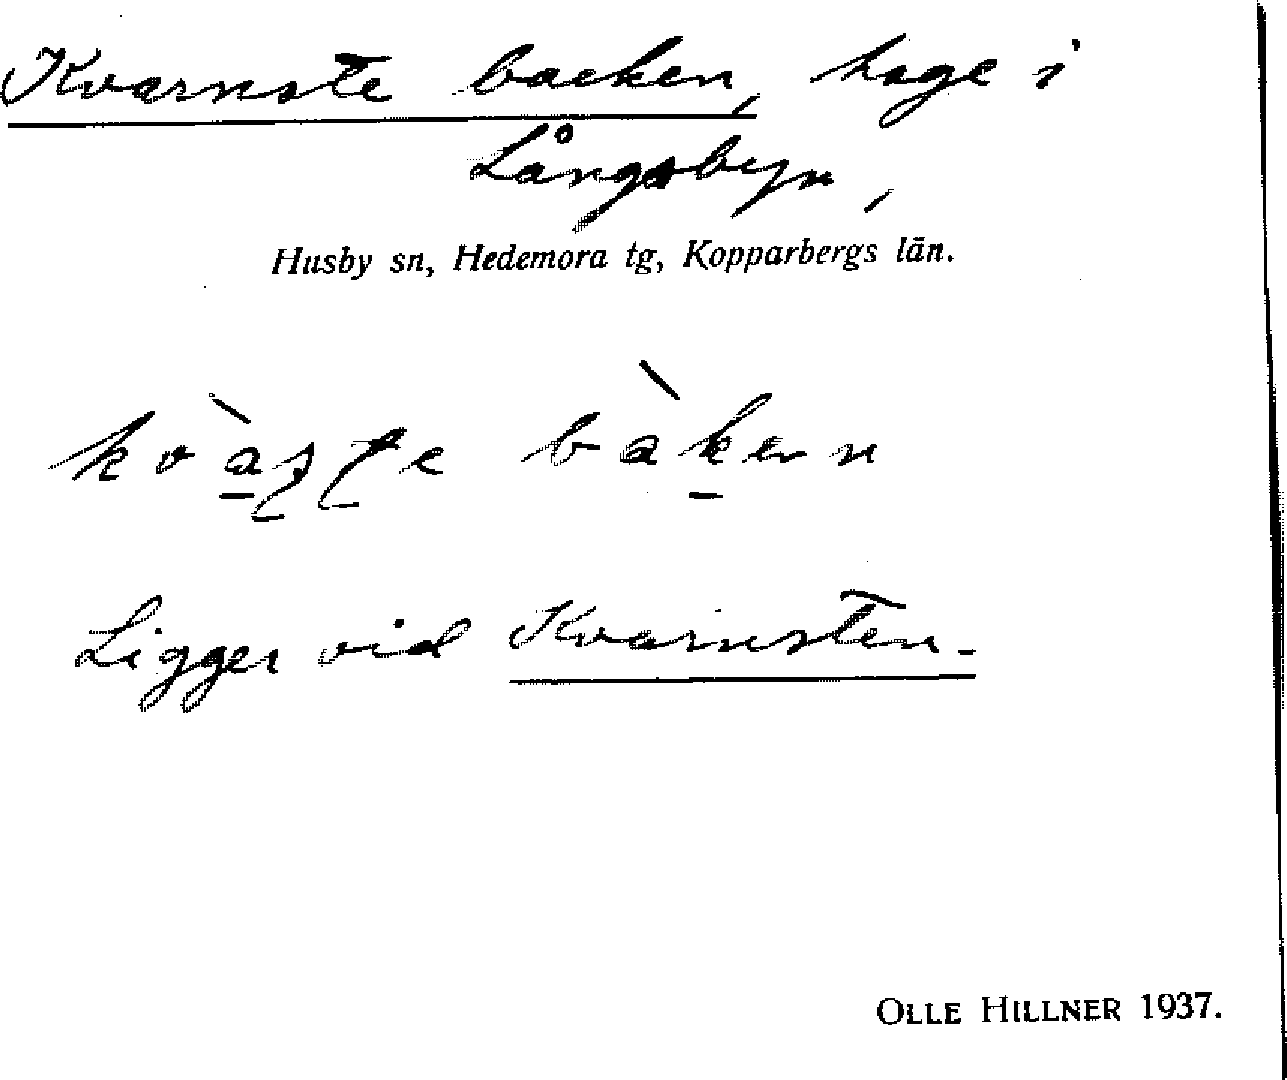 Kvarnste backen, hage i
Långsbyn,
Husby sn, Hedemora tg, Kopparbergs län.
Ligger vid Kvarnsten.
OLLE HILLNER 1937.